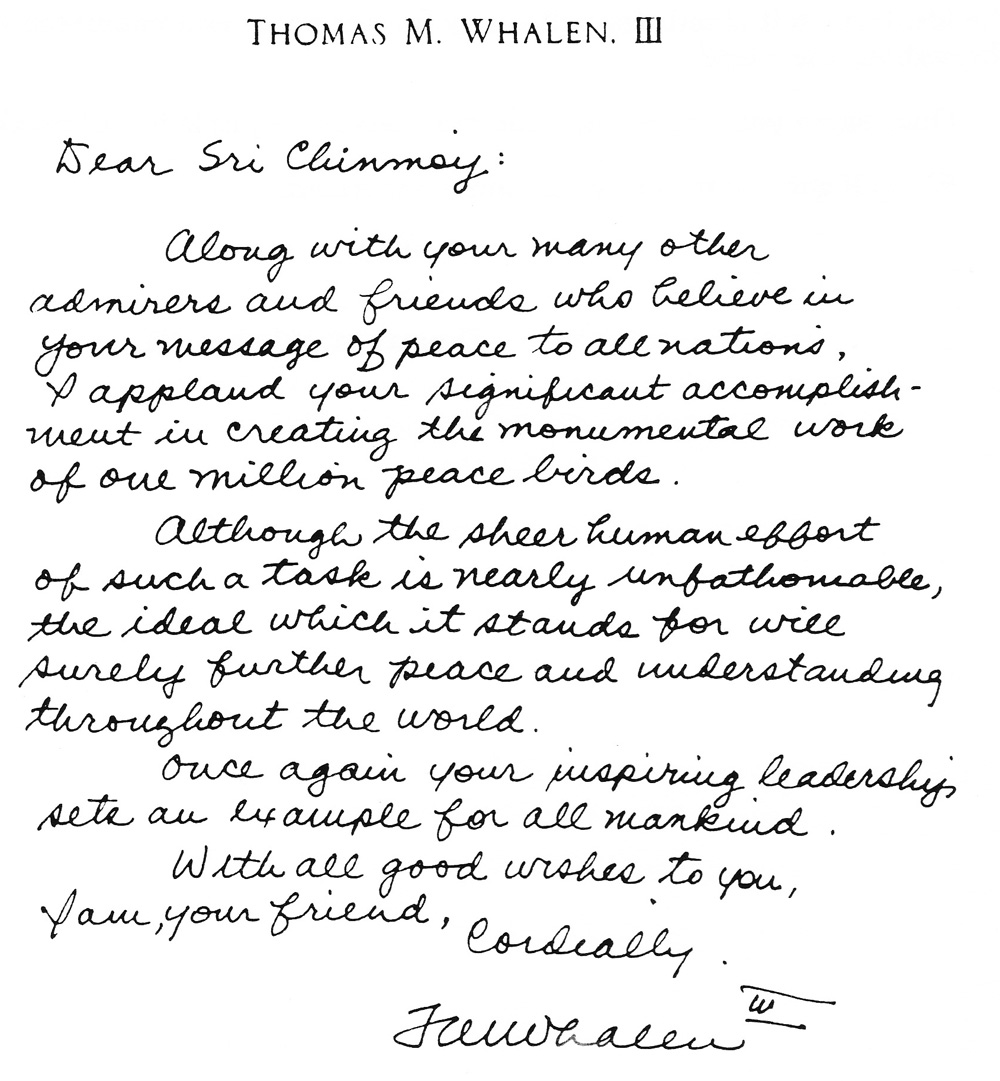 THOMAS M. WHALEN, III
Dear Sri Chinmoy:
Along with your many other
admirers and friends who believe in
your message of peace to all nations,
I applaud your significant accomplish-
ment in creating the monumental work
of one million peace birds.
Although the sheer human effort
of such a task is nearly unfathomable,
the ideal which it stands for will
surely further peace and understanding
throughout the world.
Once again your inspiring leadership
sets an example for all mankind.
With all good wishes to you,
I am, your friend,
Cordially.
TMWhalen III